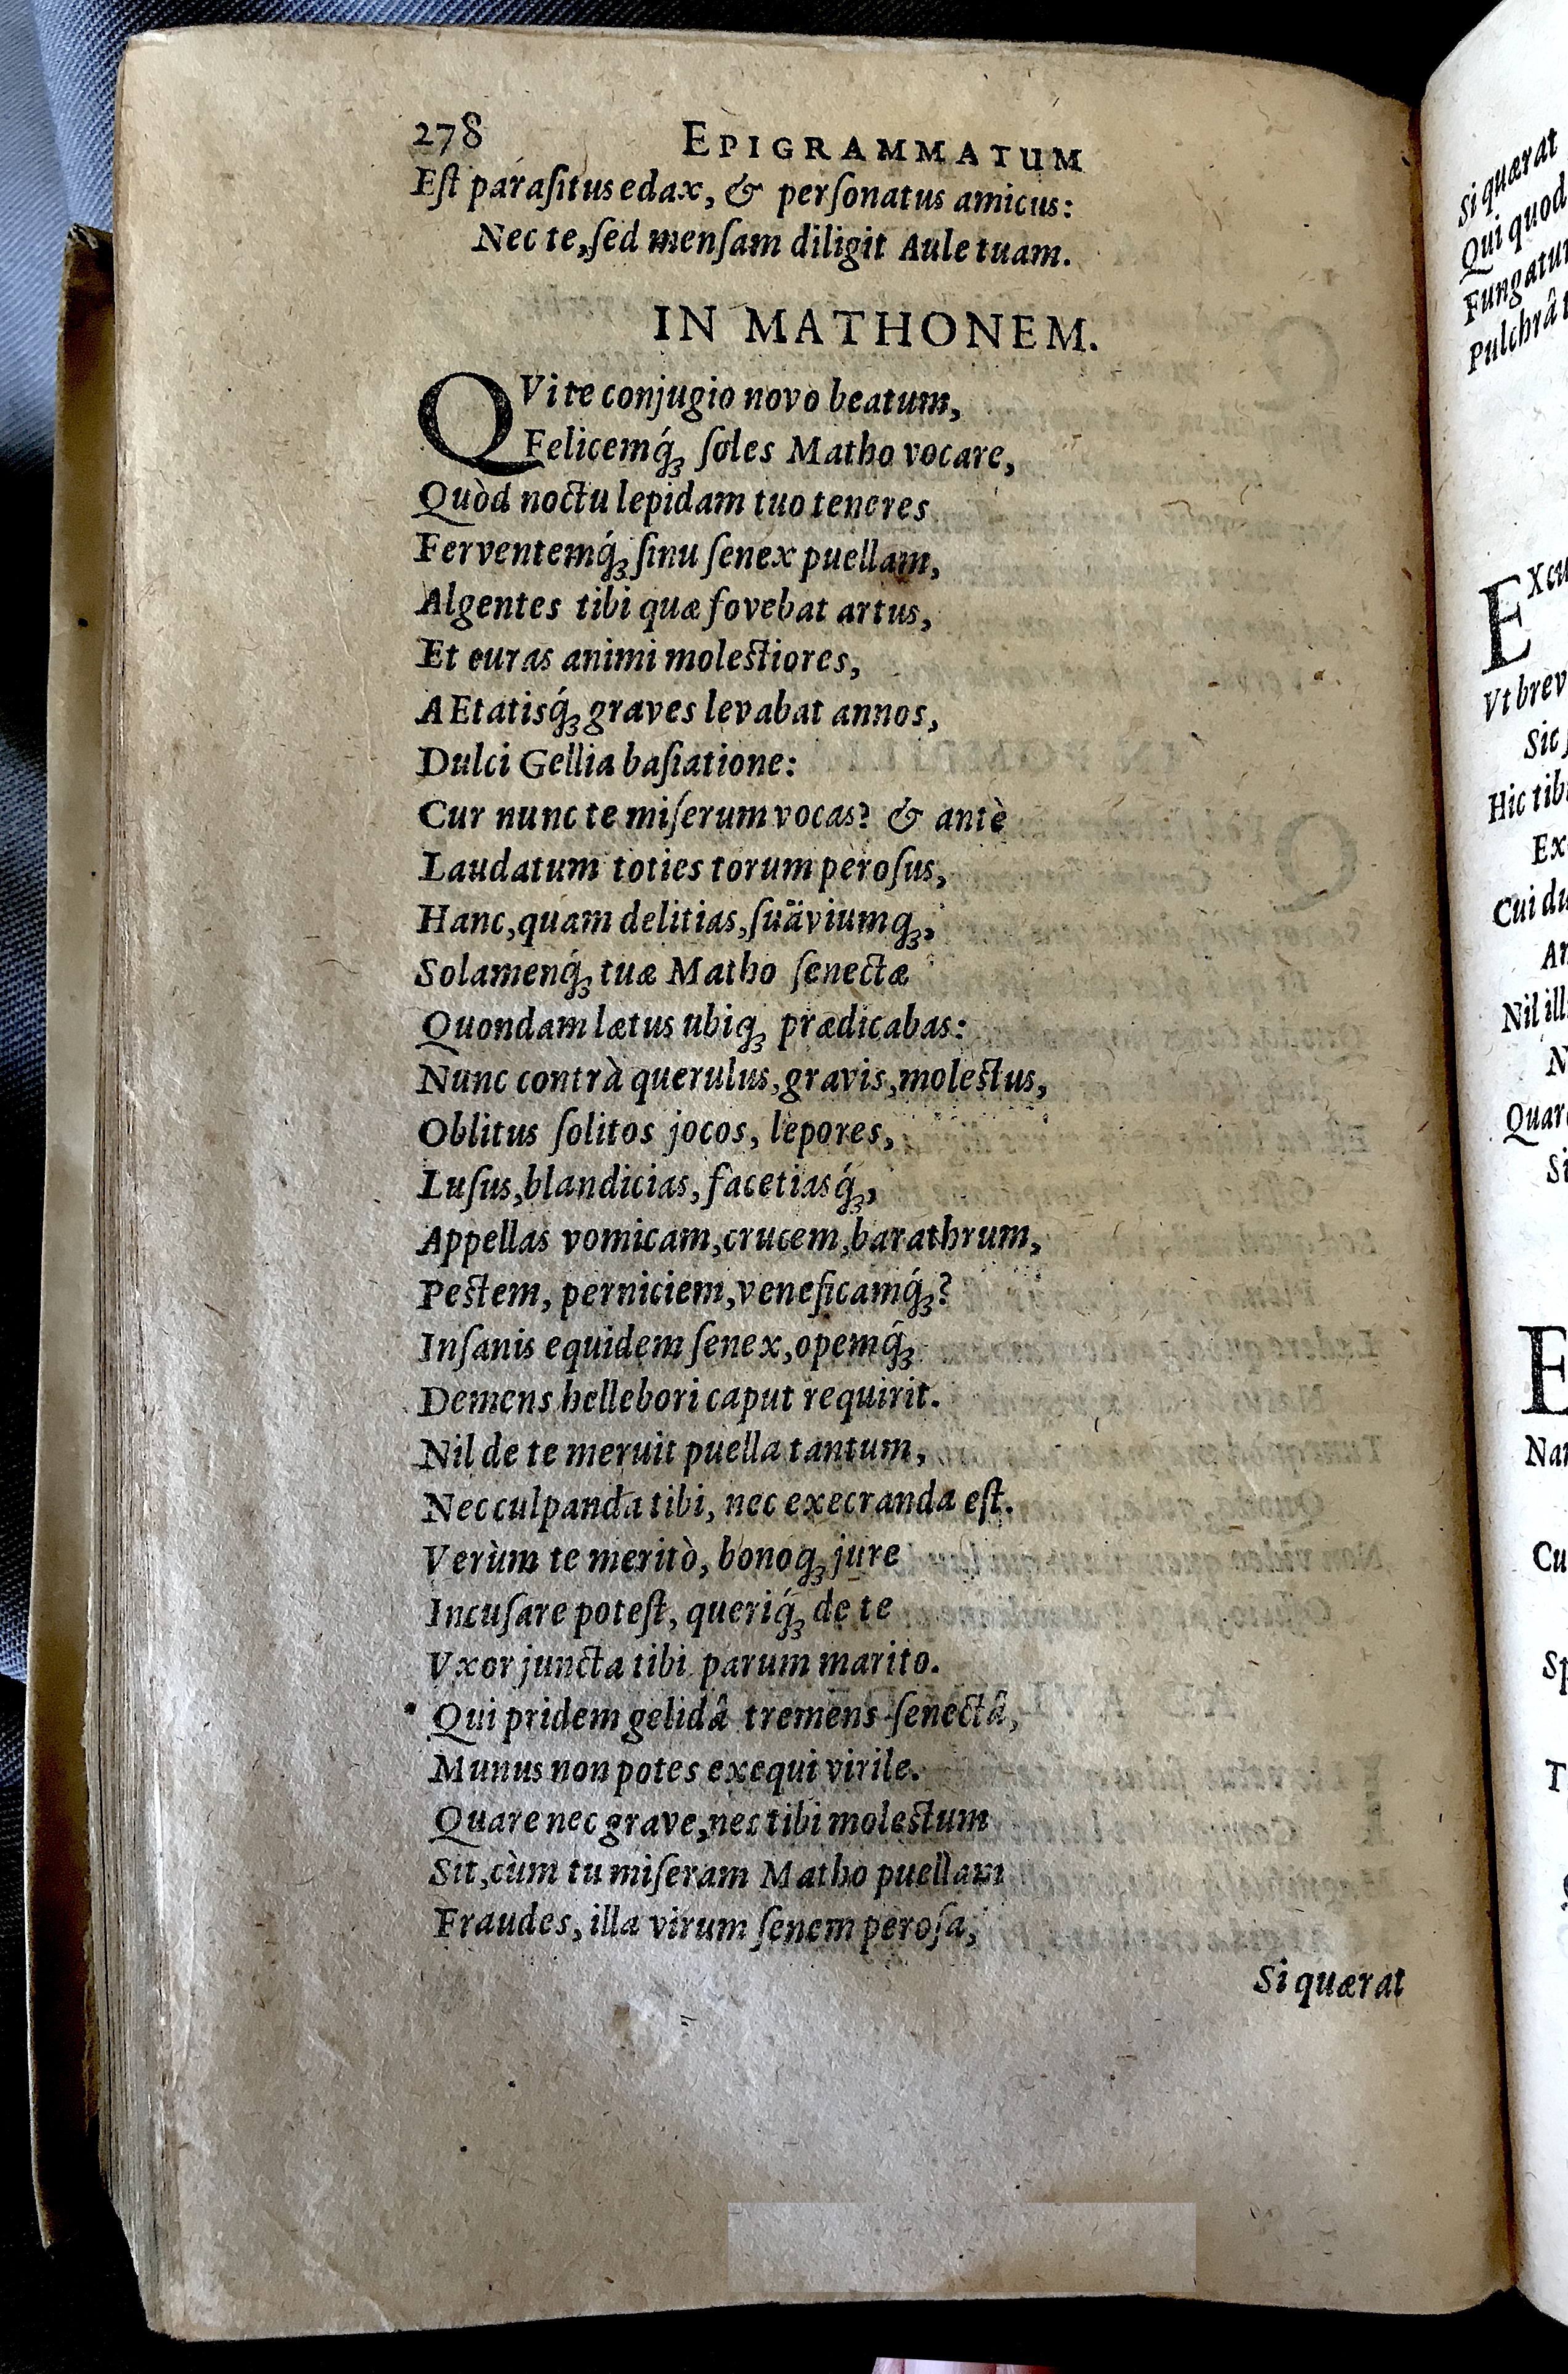 278 EPIGRAMMATUM
Eſt paraſitus edax, & perſonatus amicus:
Nec te, ſed menſam diligit Aule tuam.
IN MATHONEM.
QVi te conjugio novo beatum,
Felicemq́; ſoles Matho vocare,
Quòd noctu lepidam tuo teneres
Ferventemq́; ſinu ſenex puellam,
Algentes tibi quæ fovebat artus,
Et curas animi moleſtiores,
AEtatisq́; graves levabat annos,
Dulci Gellia baſiatione:
Cur nunc te miſerum vocas? & antè
Laudatum toties torum peroſus,
Hanc, quam delitias, ſuäviumq;,
Solamenq́; tuæ Matho ſenectæ
Quondam lætus ubiq; prædicabas:
Nunc contrà querulus, gravis, moleſtus,
Oblitus ſolitos jocos, lepores,
Luſus, blandicias, facetiasq́;,
Appellas vomicam, crucem, barathrum,
Peſtem, perniciem, veneficamq́;?
Inſanis equidem ſenex, opemq́;
Demens hellebori caput requirit.
Nil de te meruit puella tantum,
Nec culpanda tibi, nec execranda eſt.
Verùm te meritò, bonoq; jure
Incuſare poteſt, queriq́; de te
Vxor juncta tibi parum marito.
Qui pridem gelidâ tremens ſenectâ,
Munus non potes exequi virile.
Quare nec grave, nec tibi moleſtum
Sit, cùm tu miſeram Matho puellam
Fraudes, illa virum ſenem peroſa,
Si quærat
Si quærat
Qui quod
Pulchrâ
Hic tib
Nil ill